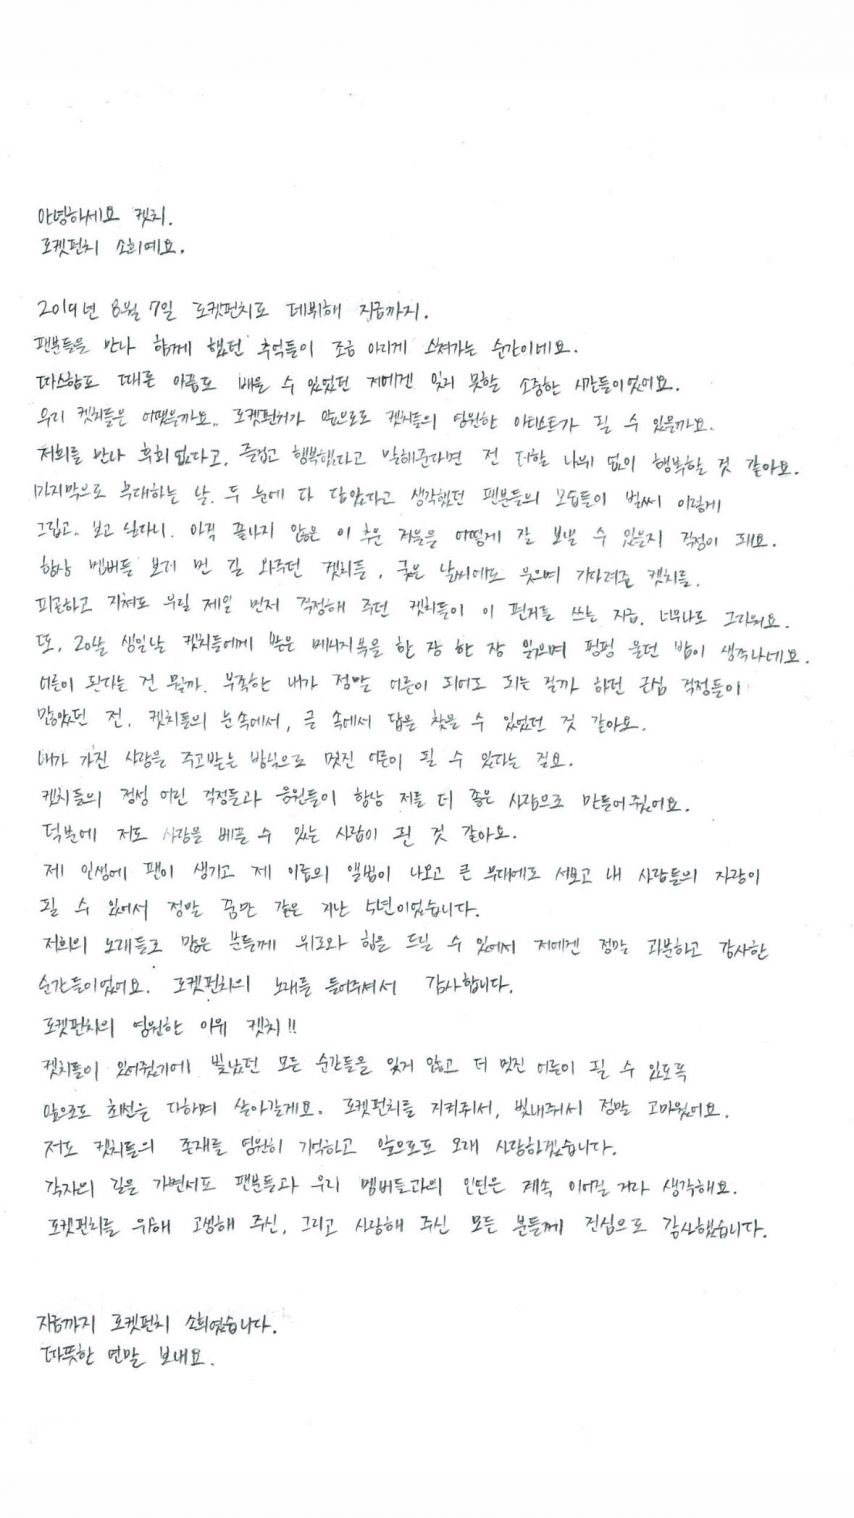 안녕하세요 켓치.
로켓펀치 소희예요.
2019년 8월 7일 로켓펀치로 데뷔해 지금까지.
팬분들을 만나 함께 했던 추억들이 조금 아리게 스쳐가는 순간이네요.
따스함도 때론 아픔도 배울 수 있었던 저에겐 잊지 못할 소중한 시간들이었어요.
우리 켓치들은 어땠을까요.. 로켓펀치가 앞으로도 켓치들의 영원한 아티스트가 될 수 있을까요.
저희를 만나 후회 없다고, 즐겁고 행복했다고 말해준다면 전 더할 나위 없이 행복할 것 같아요.
마지막으로 무대하는 날. 두 눈에 다 담았다고 생각했던 팬분들의 모습들이 벌써 이렇게
그립고.. 보고 싶다니. 아직 끝나지 않은 이 추운 겨울을 어떻게 잘 보낼 수 있을지 걱정이 돼요.
항상 멤버들 보러 먼 길 와주던 켓치들, 궂은 날씨에도 웃으며 기다려준 켓치들.
피곤하고 지쳐도 우릴 제일 먼저 걱정해 주던 켓치들이 이 편지를 쓰는 지금. 너무나도 그리워요.
또, 20살 생일날 켓치들에게 받은 메시지북을 한 장 한 장 읽으며 펑펑 울던 밤이 생각나네요.
어른이 된다는 건 뭘까. 부족한 내가 정말 어른이 되어도 되는 걸까 하던 근심 걱정들이
많았던 전. 켓치들의 눈 속에서, 글 속에서 답을 찾을 수 있었던 것 같아요.
내가 가진 사랑을 주고받는 방식으로 멋진 어른이 될 수 있다는 걸요.
켓치들의 정성 어린 걱정들과 응원들이 항상 저를 더 좋은 사람으로 만들어 주었어요.
덕분에 저도 사랑을 베풀 수 있는 사람이 된 것 같아요.
제 인생에 팬이 생기고 제 이름의 앨범이 나오고 큰 무대에도 서보고 내 사람들의 자랑이
될 수 있어서 정말 꿈만 같은 지난 5년이었습니다.
저희의 노래들로 많은 분들께 위로와 힘을 드릴 수 있어서 저에겐 정말 과분하고 감사한
순간들이었어요. 로켓펀치의 노래를 들어주셔서 감사합니다.
로켓펀치의 영원한 이유 켓치!!
켓치들이 있어줬기에 빛났던 모든 순간들을 잊지 않고 더 멋진 어른이 될 수 있도록
앞으로도 최선을 다하며 살아갈게요. 로켓펀치를 지켜줘서, 빛내줘서 정말 고마웠어요.
저도 켓치들의 존재를 영원히 기억하고 앞으로도 오래 사랑하겠습니다.
각자의 길을 가면서도 팬분들과 우리 멤버들과의 인연은 계속 이어질 거라 생각해요.
로켓펀치를 위해 고생해 주신, 그리고 사랑해 주신 모든 분들께 진심으로 감사했습니다.
지금까지 로켓펀치 소희였습니다.
따뜻한 연말 보내요.